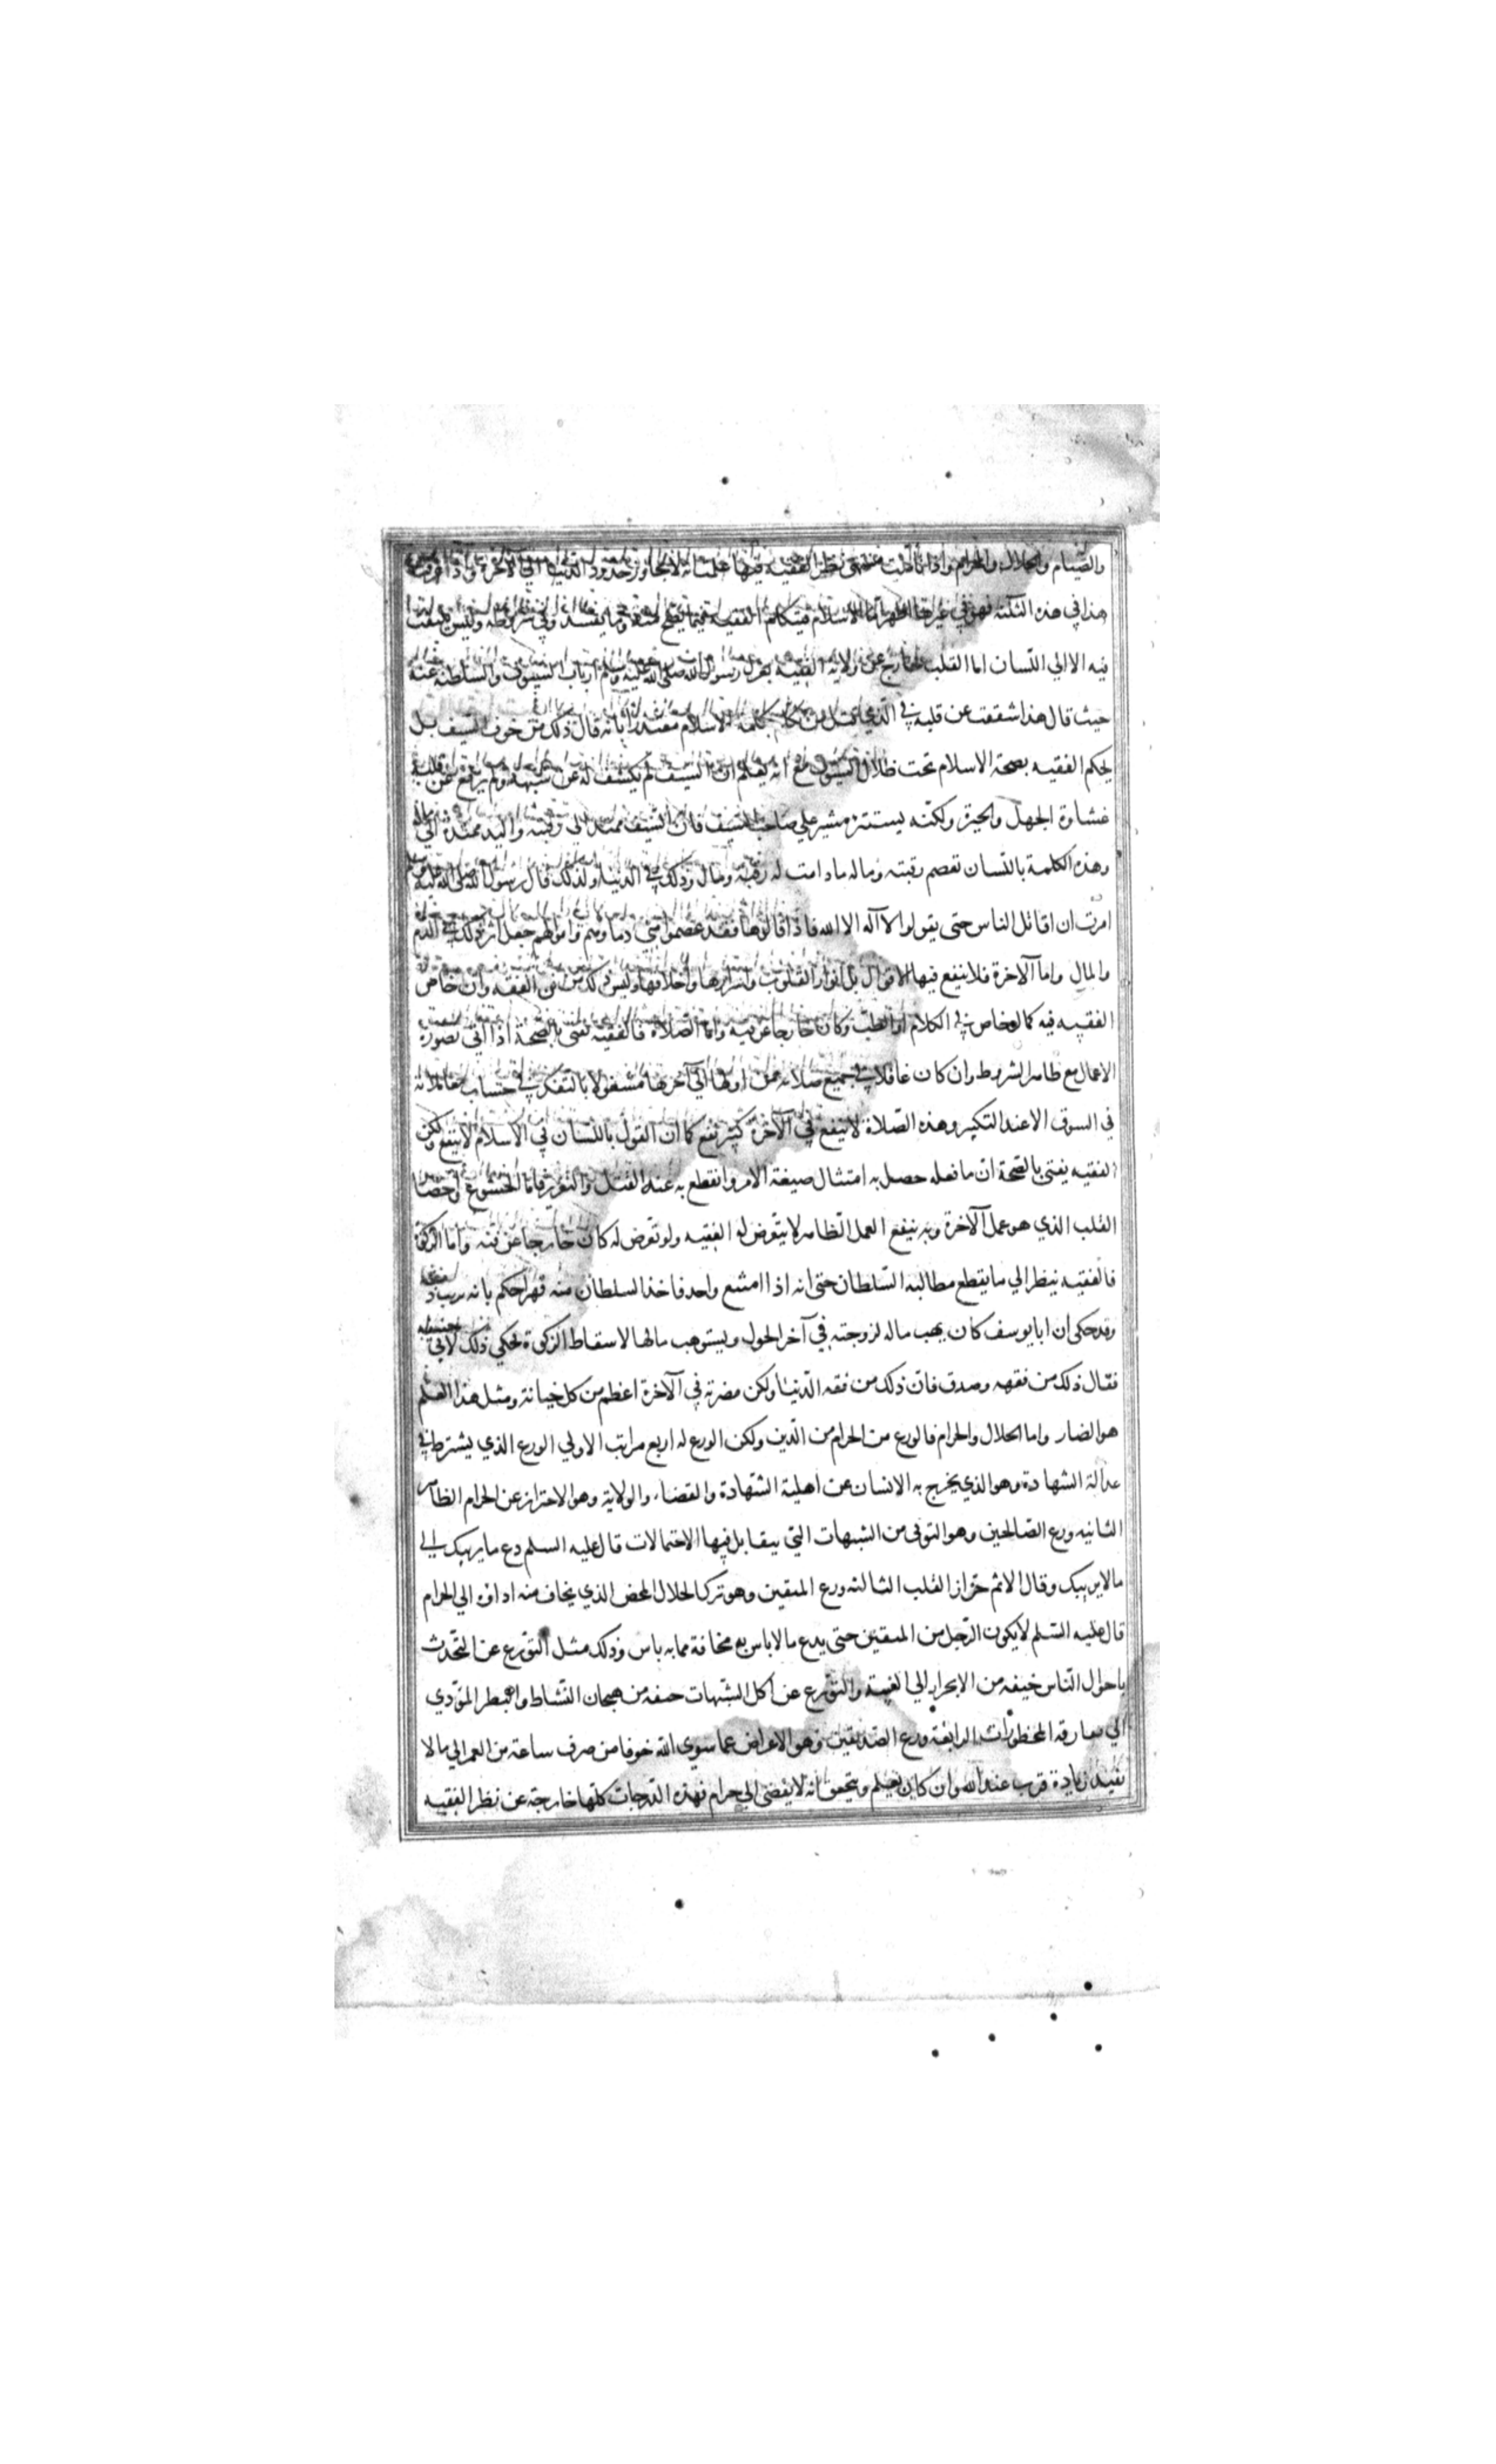 والصيام والحلال والحرام واذا تأملت منتهى نظر الفقيه فيها علمت انه لا يجاوز حدود الدنيا الي الآخرة واذا عرفت
هذا في هذه الثلثة فهو في غيرها اظهر اما الاسلام فيتكلم الفقيه فيما يصح منه وما يفسد وفي شروطه وليس يلتفت
فيه الا الي اللسان اما القلب فخارج عن ولاية الفقيه بعزل رسول الله صلى الله عليه وسلم ارباب السيوف والسلطنة عنه
حيث قال هذا شققت عن قلبه في الذي قتل من تكلم بكلمة الاسلام معتذرا بانه قال ذلك من خوف السيف بل
يحكم الفقيه بصحة الاسلام تحت ظلال السيوف مع انه يعلم ان السيف لم يكشف له عن شبهة ولم يرفع عن قلبه
غشاوة الجهل والحيرة ولكنه مشير علي صاحب السيف فان السيف ممتد الي رقبته واليد ممتدة الي ماله
وهذه الكلمة باللسان تعصم رقبته وماله مادامت له رقبة ومال وذلك في الدنيا ولذلك قال رسول الله صلى الله عليه وسلم
امرت ان اقاتل الناس حتى يقولوا لا آله الا الله فاذا قالوها فقد عصموا مني دماؤهم واموالهم جعل اثر ذلك في الدم
والمال واما الآخرة فلا ينفع فيها الاقوال بل انوار القلوب واسرارها واخلاقها وليس ذلك من فن الفقه وان خاض
الفقيه فيه كما لو خاض في الكلام او الطب وكان خارجا عن فنه واما الصلاة فالفقيه يفتى بالصحة اذا اتي بصورة
الاعمال مع ظاهر الشروط وان كان غافلا في جميع صلاته من اولها الي آخرها مشغولا بالتفكر في حساب معاملاته
في السوق الا عند التكبير وهذه الصلاة لا تنفع في الآخرة كثير نفع كما ان القول باللسان في الاسلام لا ينفع ولكن
الفقيه يفتى بالصحة ان ما فعله حصل به امتثال صيغة الامر وانقطع به عنه القتل والتعزير فاما الخشوع واحضار
القلب الذي هو عمل الآخرة وبه ينفع العمل الظاهر لا يتعرض له الفقيه ولو تعرض له كان خارجا عن فنه واما الزكوة
فالفقيه ينظر الي ما يقطع مطالبة السلطان حتى انه اذا امتنع واحد فاخذ السلطان منه قهرا حكم بانه
وقد حكى ان ابا يوسف كان يهب ماله لزوجته في آخر الحول ويستوهب مالها لاسقاط الزكوة فحكي ذلك لابي حنيفة
فقال ذلك من فقهه وصدق فان ذلك من فقه الدنيا ولكن مضرته في الآخرة اعظم من كل خيانة ومثل هذا العلم
هو الضار واما الحلال والحرام فالورع من الحرام من الدين ولكن الورع له اربع مراتب الاولي الورع الذي يشترط في
عدالة الشهادة وهو الذي يخرج به الانسان عن اهلية الشهادة والقضاء والولاية وهو الاحتراز عن الحرام الظاهر
الثانيه ورع الصالحين وهو التوقى من الشبهات التي يتقابل فيها الاحتمالات قال عليه السلم دع ما يريبك الي
مالا يريبك وقال الاثم حزاز القلب الثالثة ورع المتقين وهو ترك الحلال المحض الذي يخاف منه اداؤه الي الحرام
قال عليه السلم لا يكون الرجل من المتقين حتى يدع مالا باس به مخافة مما به باس وذلك مثل التورع عن التحدث
باحوال الناس خيفه من الانجرار الي الغيبة والتورع عن اكل الشبهات خيفه من هيجان النشاط والبطر المؤدي
الي مقارفه المحظورات الرابعة ورع الصديقين وهو الاعراض عما سوي الله خوفا من صرف ساعة من العمر الي مالا
يفيد زيادة قرب عند الله وان كان يعلم ويتحقق انه لا يفضى الي حرام فهذه الدرجات كلها خارجة عن نظر الفقيه